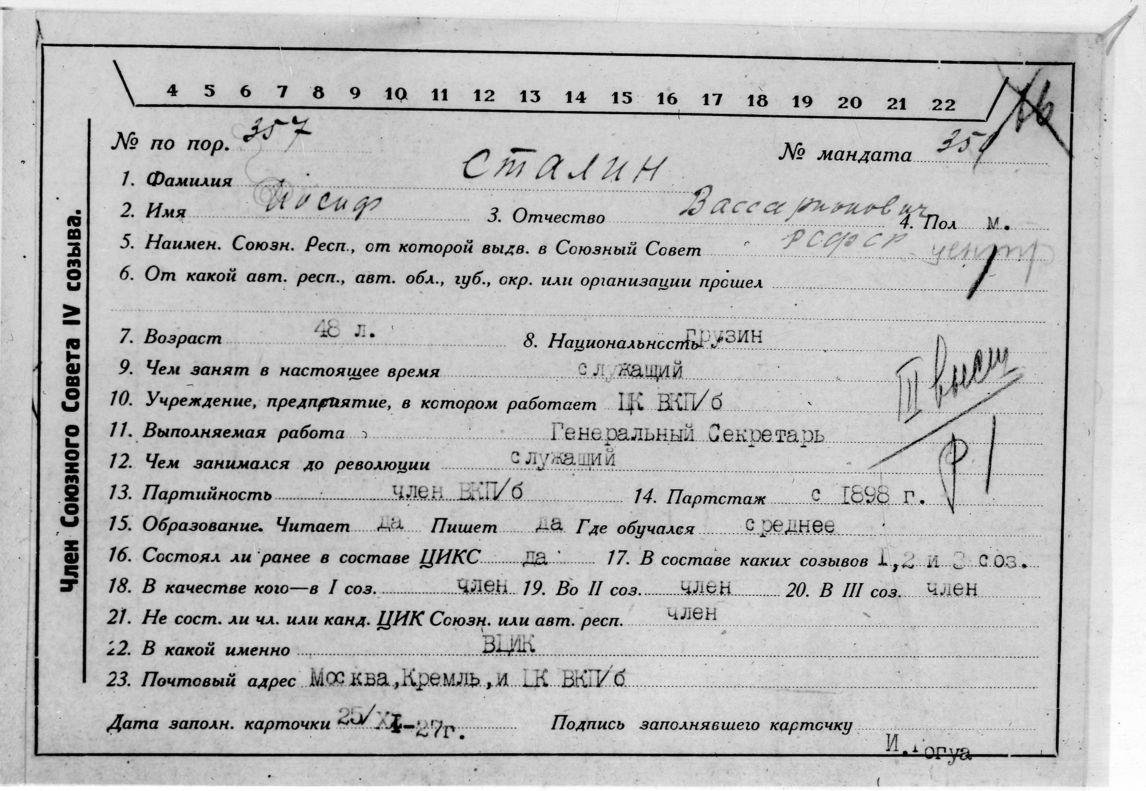 4 5 6 7 8 9 10 11 12 13 14 15 16 17 18 19 20 21 22
№ по пор. 357 № мандата
1. Фамилия Сталин
2. Имя Иосиф 3. Отчество Виссарионович 4. Пол м.
5. Наимен. Союзн. Респ., от которой выдв. в Союзный Совет РСФСР центр
6. От какой авт. респ., авт. обл., губ., окр. или организации прошел
7. Возраст 48 л. 8. Национальность грузин
9. Чем занят в настоящее время служащий
10. Учреждение, предприятие, в котором работает ЦК ВКП/б
11. Выполняемая работа Генеральный Секретарь
12. Чем занимался до революции служащий
13. Партийность член ВКП/б 14. Партстаж с 1898 г.
15. Образование. Читает да Пишет да Где обучался среднее
16. Состоял ли ранее в составе ЦИКС да 17. В составе каких созывов 1,2 и 3 соз.
18. В качестве кого—в I соз. член 19. Во II соз. член 20. В III соз. член
21. Не сост. ли чл. или канд. ЦИК Союзн. или авт. респ. член
22. В какой именно ВЦИК
23. Почтовый адрес Москва,Кремль,и ЦК ВКП/б
Дата заполн. карточки 25/XI-27г. Подпись заполнявшего карточку
И.Гогуа
Член Союзного Совета IV созыва.
III высш